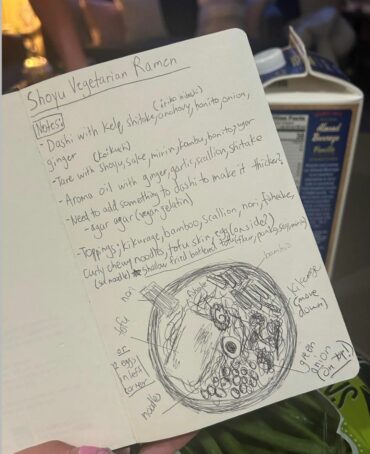 Shoyu Vegetarian Ramen
Notes:
(iriko niboshi)
- Dashi with kelp, shitake, anchovy, bonito, onion,
ginger
- Tare with shoyu, sake, mirin, kombu, bonito,
- Aroma oil with ginger, garlic, scallion, shitake
- Need to add something to dashi to make it thicker,
- agar agar (vegan gelatin)
- Toppings: kikurage, bamboo, scallion, nori,
curly chewy noodles, tofu skin, egg (on side)
shallow fried battered tofu
bamboo
nori
tofu
or
eggs
in left
corner
noodles
kikurage
(move
down)
green
onion
(on top!)
Almond
Beverage
Vanilla